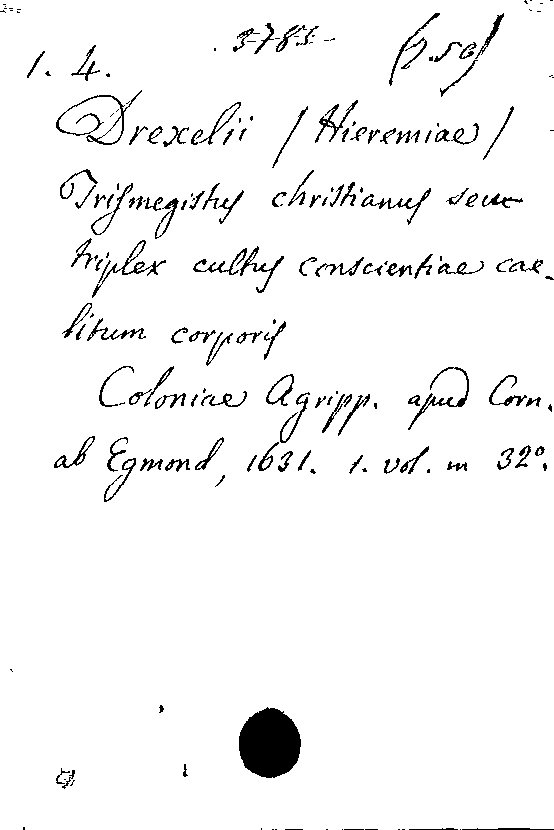 3785
1. 4. (p. 50)
Drexelii / Hieremiae /
Trismegistus christianus seu
triplex cultus conscientiae cae-
litum corporis
Coloniae Agripp. apud Corn.
ab Egmond, 1631. 1. vol. in 32°.